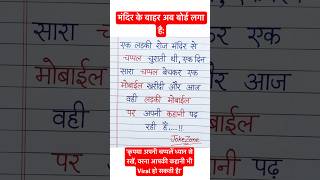 मंदिर के बाहर अब बोर्ड लगा
है:
एक लड़की रोज मंदिर से
चप्पल चुराती थी, एक दिन
सारा चप्पल बेचकर एक
मोबाईल खरीदी और आज
वही लड़की मोबाईल
पर अपनी कहानी पढ़
रही है....!!
JokeZone
'कृपया अपनी चप्पलें ध्यान से
रखें, वरना आपकी कहानी भी
Viral हो सकती है!'
सारा
मोबाईल
वही
पर
एक
आज
पढ़